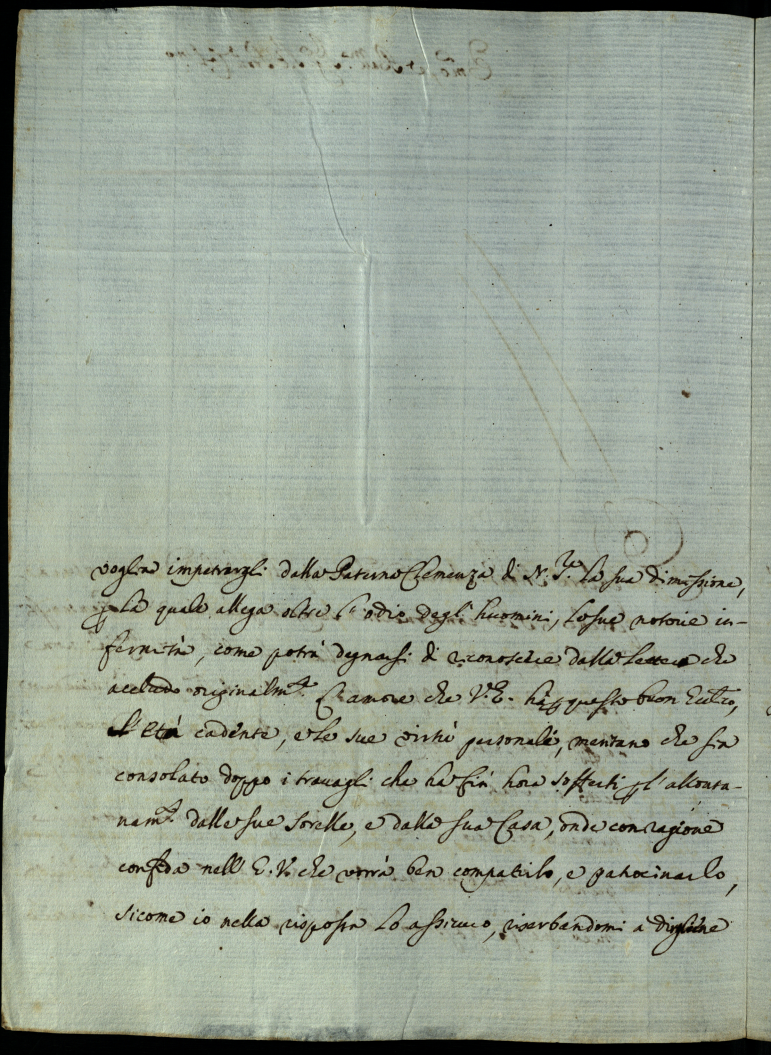 voglia impetrargli dalla Paterna Clemenza di N. Sre. la sua dimissione,
p la quale allega oltre l'odio degl'huomini, le sue notorie in-
fermità, come potrà degnarsi di riconoscere dalla lettera che
accludo originalmte. L'amore che V. E. hà p questo buon Eccl.co,
l'Età cadente, e le sue virtù personali, meritano che sia
consolato doppo i travagli che hà fin' hora sofferti p l'allonta-
namto. dalle sue sorelle, e dalla sua Casa, onde con ragione
confida nell' E. V. che vorrà ben compatirlo, e patrocinarlo,
sicome io nella risposta lo assicuro, riserbandomi à